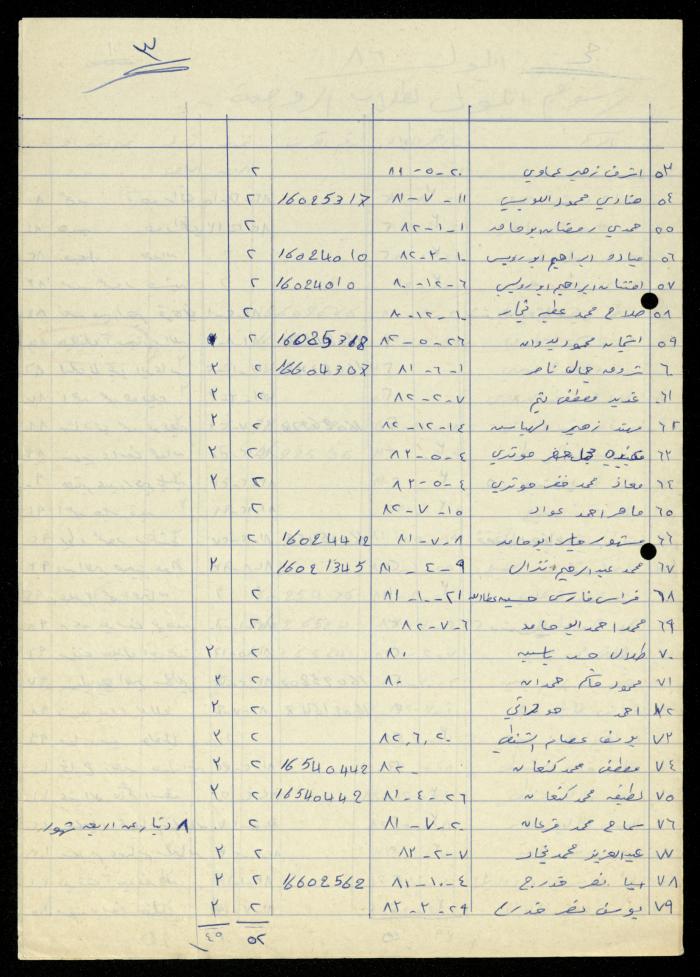 ٣
٥٣ اشرف زهير عماوي ٢٠-٥-٨١ ٢
٥٤ هنادي محمود ١١-٧-٨١ 16025317 ٢
٥٥ حمدي رمضان ابو حامد ١-١-٨٢ ٢
٥٦ ميادو ابراهيم ابو رويس ١٠-٣-٨٢ 16024010 ٢
٥٧ افتنان ابراهيم ابو رويس ٦-١٢-٨٠ 16024010 ٢
٥٨ صلاح محمد عطيه نجار ١٠-١٢-٨٠ ٢
٥٩ محمود بدوان ٢٦-٥-٨٢ 16025318 ٢
٦٠ شروق جمال ناصر ١-٦-٨١ 16604307 ٢ ٢
٦١ غدير مصطفى يتيم ٧-٢-٨٢ ٢ ٢
٦٢ مهند زهير ١٤-١٢-٨٢ ٢ ٢
٦٣ ٤-٥-٨٢ ٢ ٢
٦٤ معاذ محمد خضر هوتري ٤-٥-٨٢ ٢ ٢
٦٥ ماهر احمد عواد ١٥-٧-٨٢ ٢
٦٦ مشهور ابو حامد ٨-٧-٨١ 16024412 ٢
٦٧ محمد عبد الرحيم ٩-٢-٨١ 16021345 ٢
٦٨ فراس فارس حسين عطالله ٢١-١٠-٨١ ٢
٦٩ محمد احمد ابو حامد ٦-٧-٨٢ ٢
٧٠ طلال ياسين ٨٠ ٢ ٢
٧١ محمود قاسم حمدان ٨٠ ٢ ٣
٧٢ احمد حوراني ٢ ٢
٧٣ يوسف عصام الشنطي ٢٠,٦,٨٢ ٢ ٣
٧٤ مصطفى محمد كنعان ٨٢ 16540442 ٢ ٢
٧٥ لطيفه محمد كنعان ٢٦-٤-٨١ 16540442 ٢ ٢
٧٦ سماح محمد فرحان ٢٠-٧-٨١ ٢ ٨ دنانير عن اربعة شهور
٧٧ عبد العزيز محمد نجار ٧-٢-٨٢ ٢ ٢
٧٨ نصر قدورح ٤-١٠-٨١ 16602562 ٢ ٢
٧٩ يوسف نصر قدورح ٢٩-٣-٨٣ ٢ ٢
٥٢ ٤٥